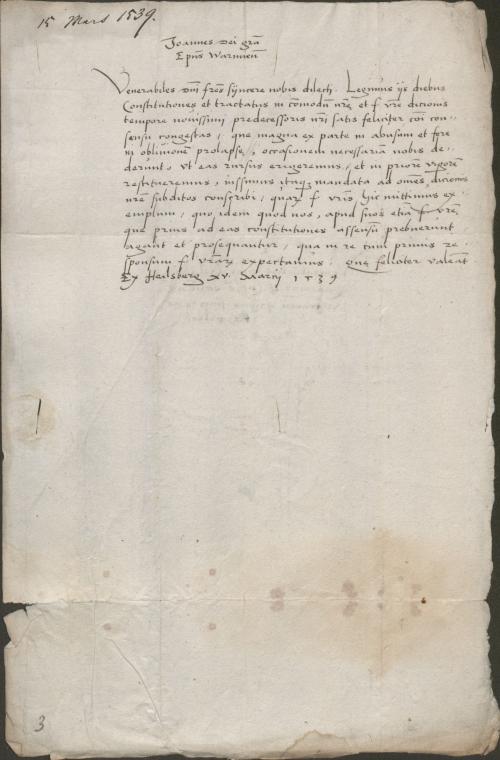 15 Mars 1539.
Joannes Dei grã
Epũs Warmieñ
Venerabiles dñi fres syncere nobis dilecti. Legimus iis diebus
Constitutiones et tractatus in cõmodũ nrẽ et f. vre dicionis
tempore novissimi predecessoris nri satis feliciter coĩ con-
sensu congestas, que magna ex parte in abusum et fere
in obliuionẽ prolapse, occasionem necessariã nobis de-
derunt, vt eas rursus erigeremus, et in priorẽ vigorẽ
restitueremus, iussimus itaq; mandata ad omẽs dicionis
nre subditos conscribi, quar f. vris hic mittimus ex-
emplum, quo idem quod nos, apud suos etiã f. vre,
que prius ad eas constitutiones assensũ prebuerunt
agant et prosequantur, qua in re cum primis re-
sponsum f. vrar expectamus. que feliciter valeãt
Ex Heilsberg XV. Marcij 1539
3